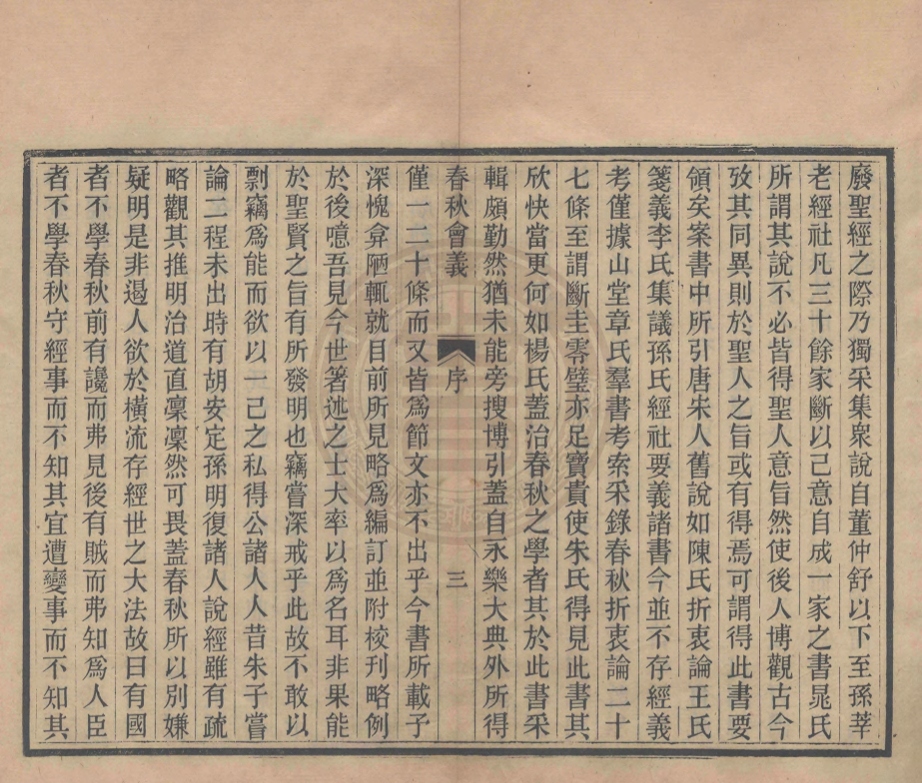 廢聖經之際乃獨采集衆說自董仲舒以下至孫莘
老經社凡三十餘家斷以己意自成一家之書晁氏
所謂其說不必皆得聖人意旨然使後人博觀古今
攷其同異則於聖人之旨或有得焉可謂得此書要
領矣案書中所引唐宋人舊說如陳氏折衷論王氏
箋義李氏集議孫氏經社要義諸書今並不存經義
考僅據山堂章氏羣書考索采錄春秋折衷論二十
七條至謂斷圭零璧亦足寶貴使朱氏得見此書其
欣快當更何如楊氏蓋治春秋之學者其於此書采
輯頗勤然猶未能旁搜博引蓋自永樂大典外所得
春秋會義 序 三
僅一二十條而又皆爲節文亦不出乎今書所載子
深愧弇陋輒就目前所見略爲編訂並附校刊略例
於後噫吾見今世箸述之士大率以爲名耳非果能
於聖賢之旨有所發明也竊嘗深戒乎此故不敢以
剽竊爲能而欲以一己之私得公諸人人昔朱子嘗
論二程未出時有胡安定孫明復諸人說經雖有疏
略觀其推明治道直凜凜然可畏蓋春秋所以別嫌
疑明是非遏人欲於橫流存經世之大法故曰有國
者不學春秋前有讒而弗見後有賊而弗知爲人臣
者不學春秋守經事而不知其宜遭變事而不知其